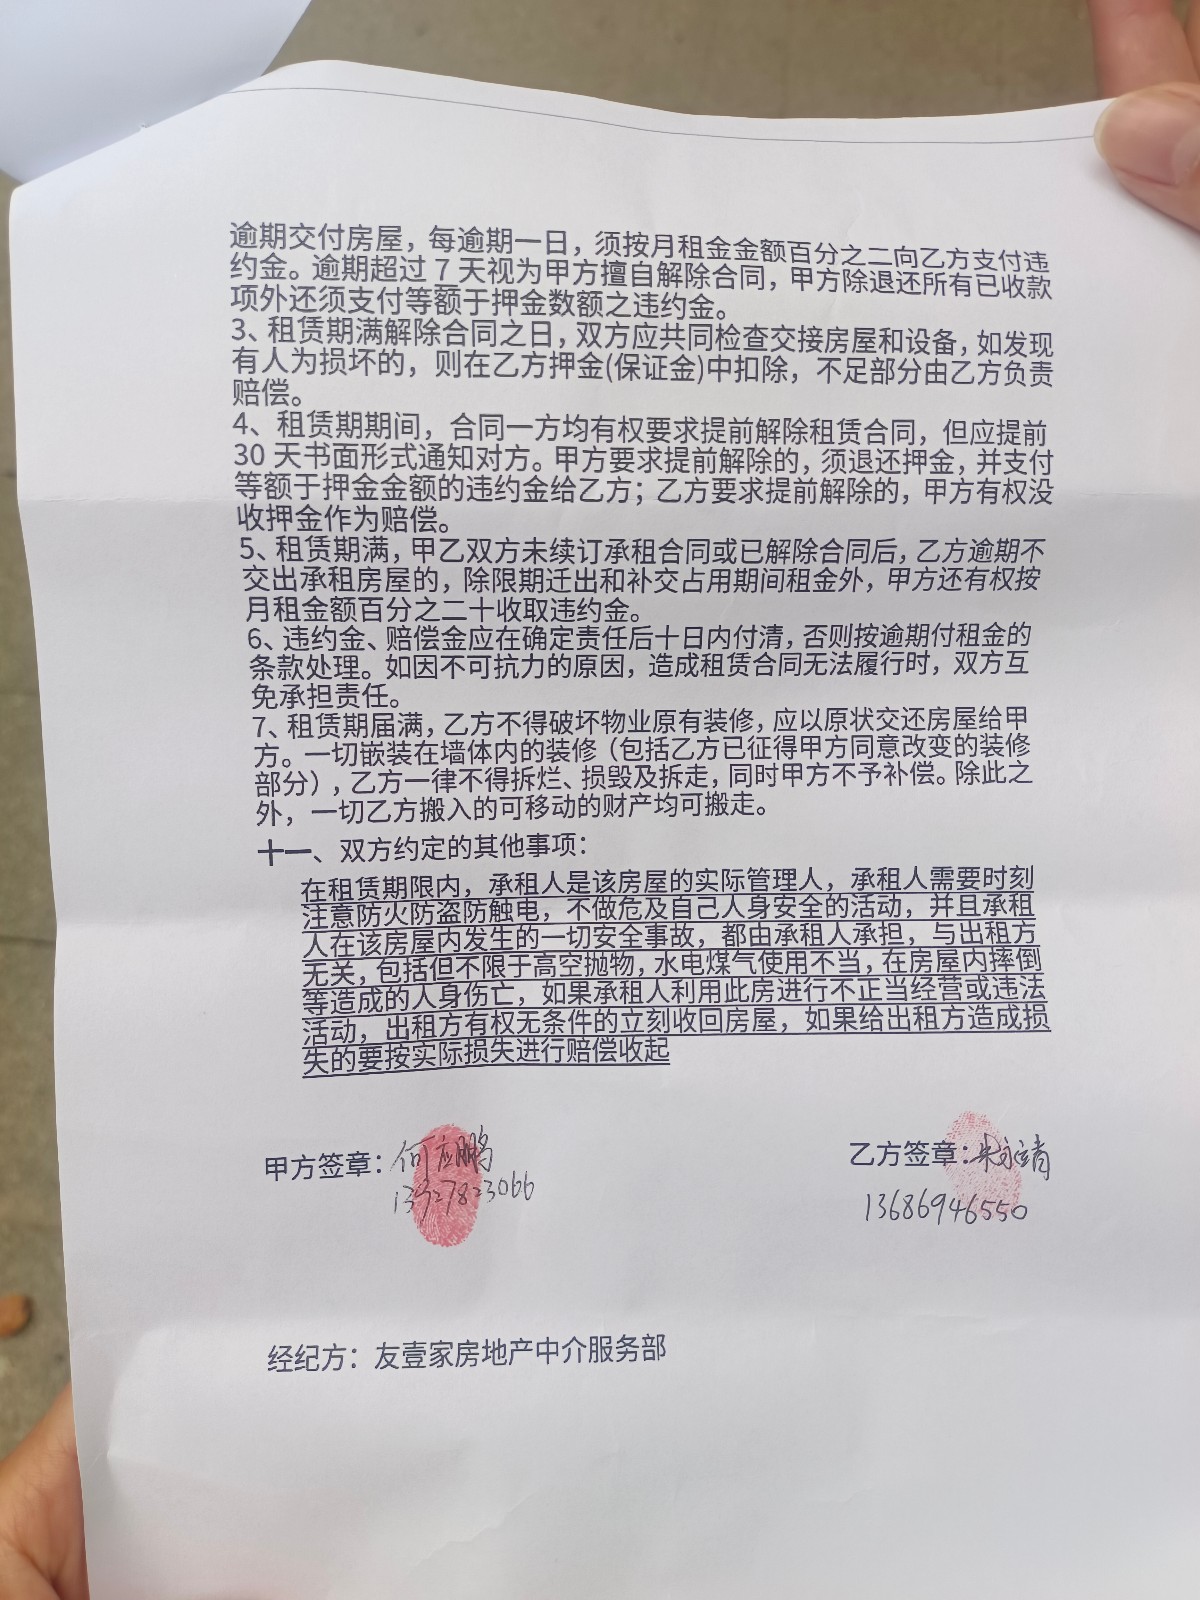 逾期交付房屋，每逾期一日，须按月租金金额百分之二向乙方支付违
约金。逾期超过 7 天视为甲方擅自解除合同，甲方除退还所有已收款
项外还须支付等额于押金数额之违约金。
3、租赁期满解除合同之日，双方应共同检查交接房屋和设备，如发现
有人为损坏的，则在乙方押金(保证金)中扣除，不足部分由乙方负责
赔偿。
4、租赁期期间，合同一方均有权要求提前解除租赁合同，但应提前
30 天书面形式通知对方。甲方要求提前解除的，须退还押金，并支付
等额于押金金额的违约金给乙方；乙方要求提前解除的，甲方有权没
收押金作为赔偿。
5、租赁期满，甲乙双方未续订承租合同或已解除合同后，乙方逾期不
交出承租房屋的，除限期迁出和补交占用期间租金外，甲方还有权按
月租金额百分之二十收取违约金。
6、违约金、赔偿金应在确定责任后十日内付清，否则按逾期付租金的
条款处理。如因不可抗力的原因，造成租赁合同无法履行时，双方互
免承担责任。
7、租赁期届满，乙方不得破坏物业原有装修，应以原状交还房屋给甲
方。一切嵌装在墙体内的装修（包括乙方已征得甲方同意改变的装修
部分），乙方一律不得拆烂、损毁及拆走，同时甲方不予补偿。除此之
外，一切乙方搬入的可移动的财产均可搬走。
十一、双方约定的其他事项：
在租赁期限内，承租人是该房屋的实际管理人，承租人需要时刻
注意防火防盗防触电，不做危及自己人身安全的活动，并且承租
人在该房屋内发生的一切安全事故，都由承租人承担，与出租方
无关，包括但不限于高空抛物，水电煤气使用不当，在房屋内摔倒
等造成的人身伤亡，如果承租人利用此房进行不正当经营或违法
活动，出租方有权无条件的立刻收回房屋，如果给出租方造成损
失的要按实际损失进行赔偿收起
甲方签章：何应鹏
乙方签章：朱永靖
13686946550
经纪方：友壹家房地产中介服务部